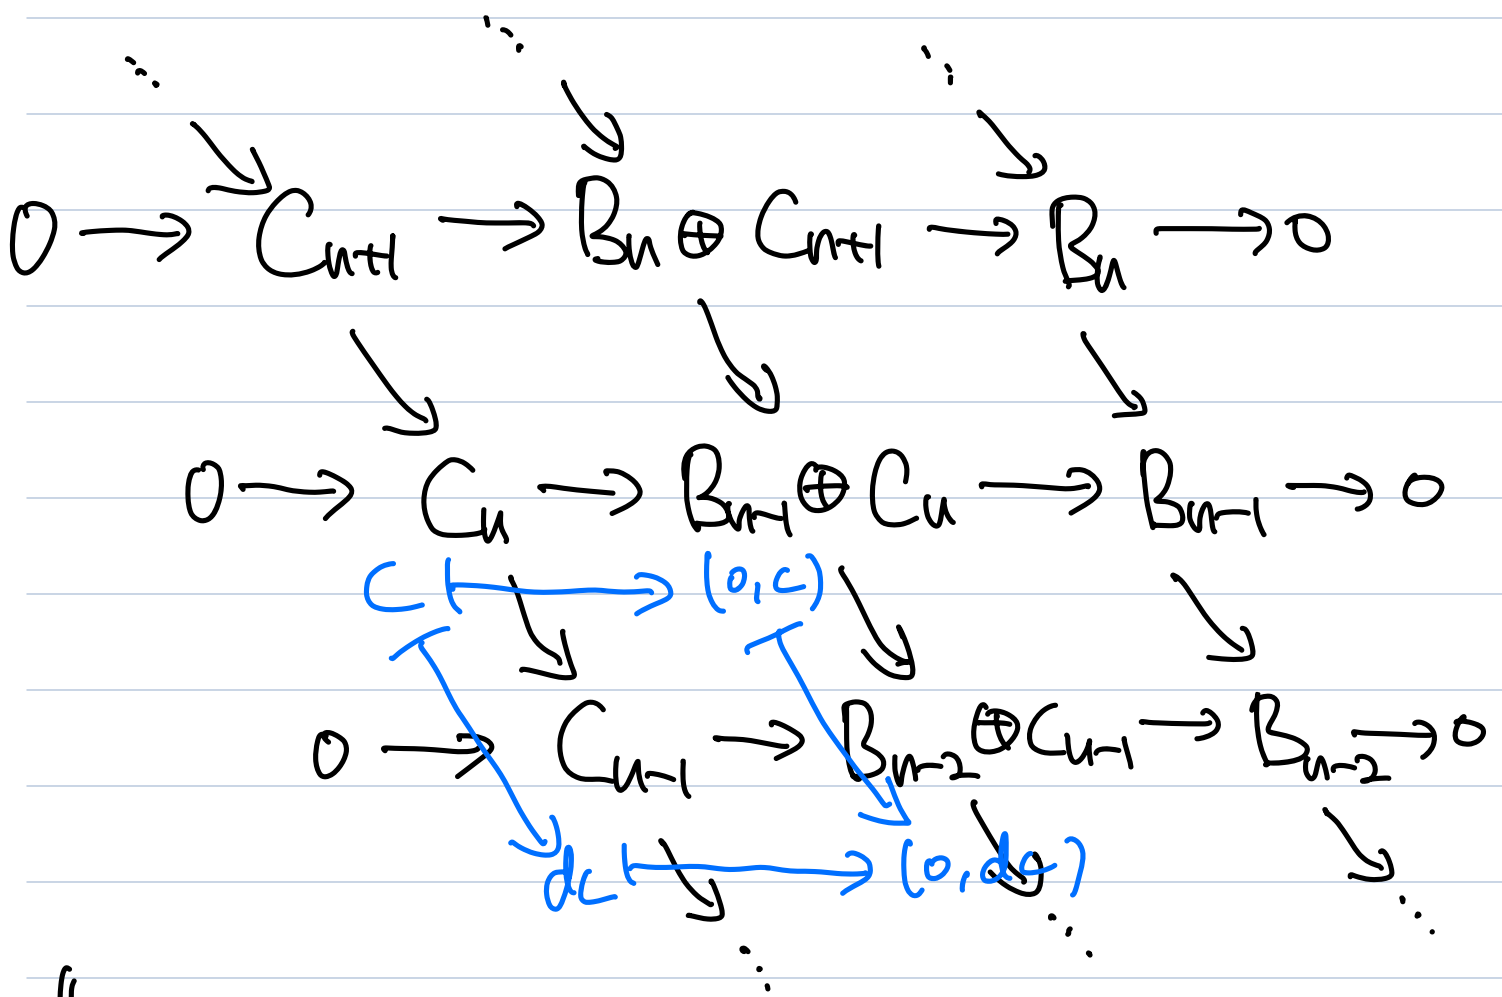 0 → C_{n+1} → B_n ⊕ C_{n+1} → B_n → 0
0 → C_n → B_{n-1} ⊕ C_n → B_{n-1} → 0
c ↦ (0, c)
0 → C_{n-1} → B_{n-2} ⊕ C_{n-1} → B_{n-2} → 0
dc ↦ (0, dc)